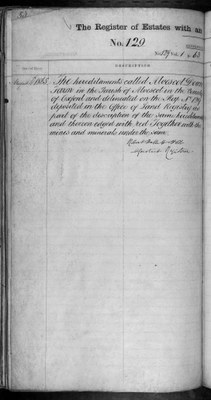 The Register of Estates with an
No. 129
DESCRIPTION
1865
The hereditaments called Alvescot Down
Farm in the Parish of Alvescot in the County
of Oxford and delineated on the Map No 129
deposited in the Office of Land Registry as
part of the description of the same hereditaments
and thereon edged with red Together with the
mines and minerals under the same
Registrar